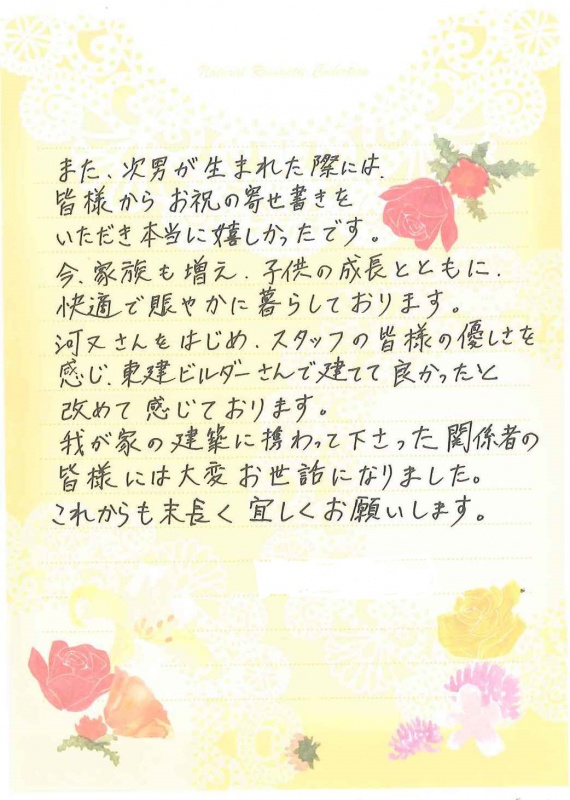 Natural Romantic Collection
また、次男が生まれた際には、
皆様から お祝の寄せ書きを
いただき 本当に嬉しかったです。
今、家族も増え、子供の成長とともに、
快適で賑やかに暮らしております。
河又さんをはじめ、スタッフの皆様の優しさを
感じ、東建ビルダーさんで建てて良かったと
改めて感じております。
我が家の建築に携わって下さった関係者の
皆様には大変お世話になりました。
これからも末長く宜しくお願いします。